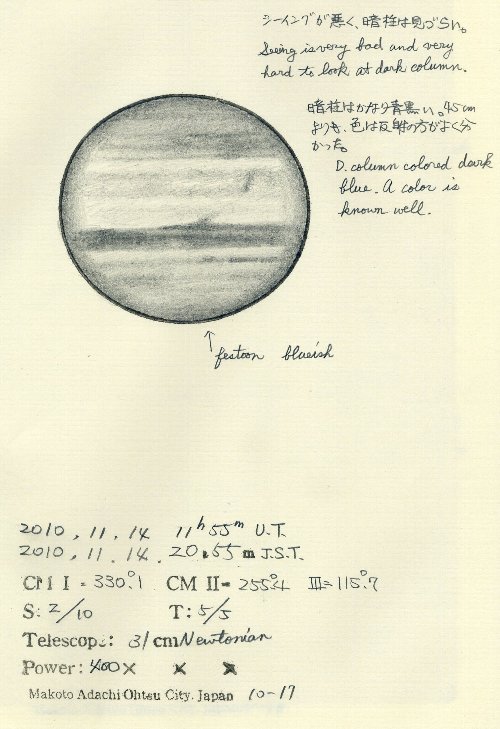 シーイングが悪く、暗柱は見づらい。
Seeing is very bad and very
hard to look at dark column.
暗柱はかなり青黒い。45cm
よりも、色は反射の方がよく分
かった。
D. column colored dark
blue. A color is
known well.
↑
festoon blueish
2010, 11, 14 11h 55m U.T.
2010, 11, 14. 20h 55m J.S.T.
CM I = 330°.1 CM II= 255°.4 III= 115°.7
S: 2/10 T: 5/5
Telescope: 31cm Newtonian
Power: 400× × ×
Makoto Adachi Ohtsu City. Japan 10-17